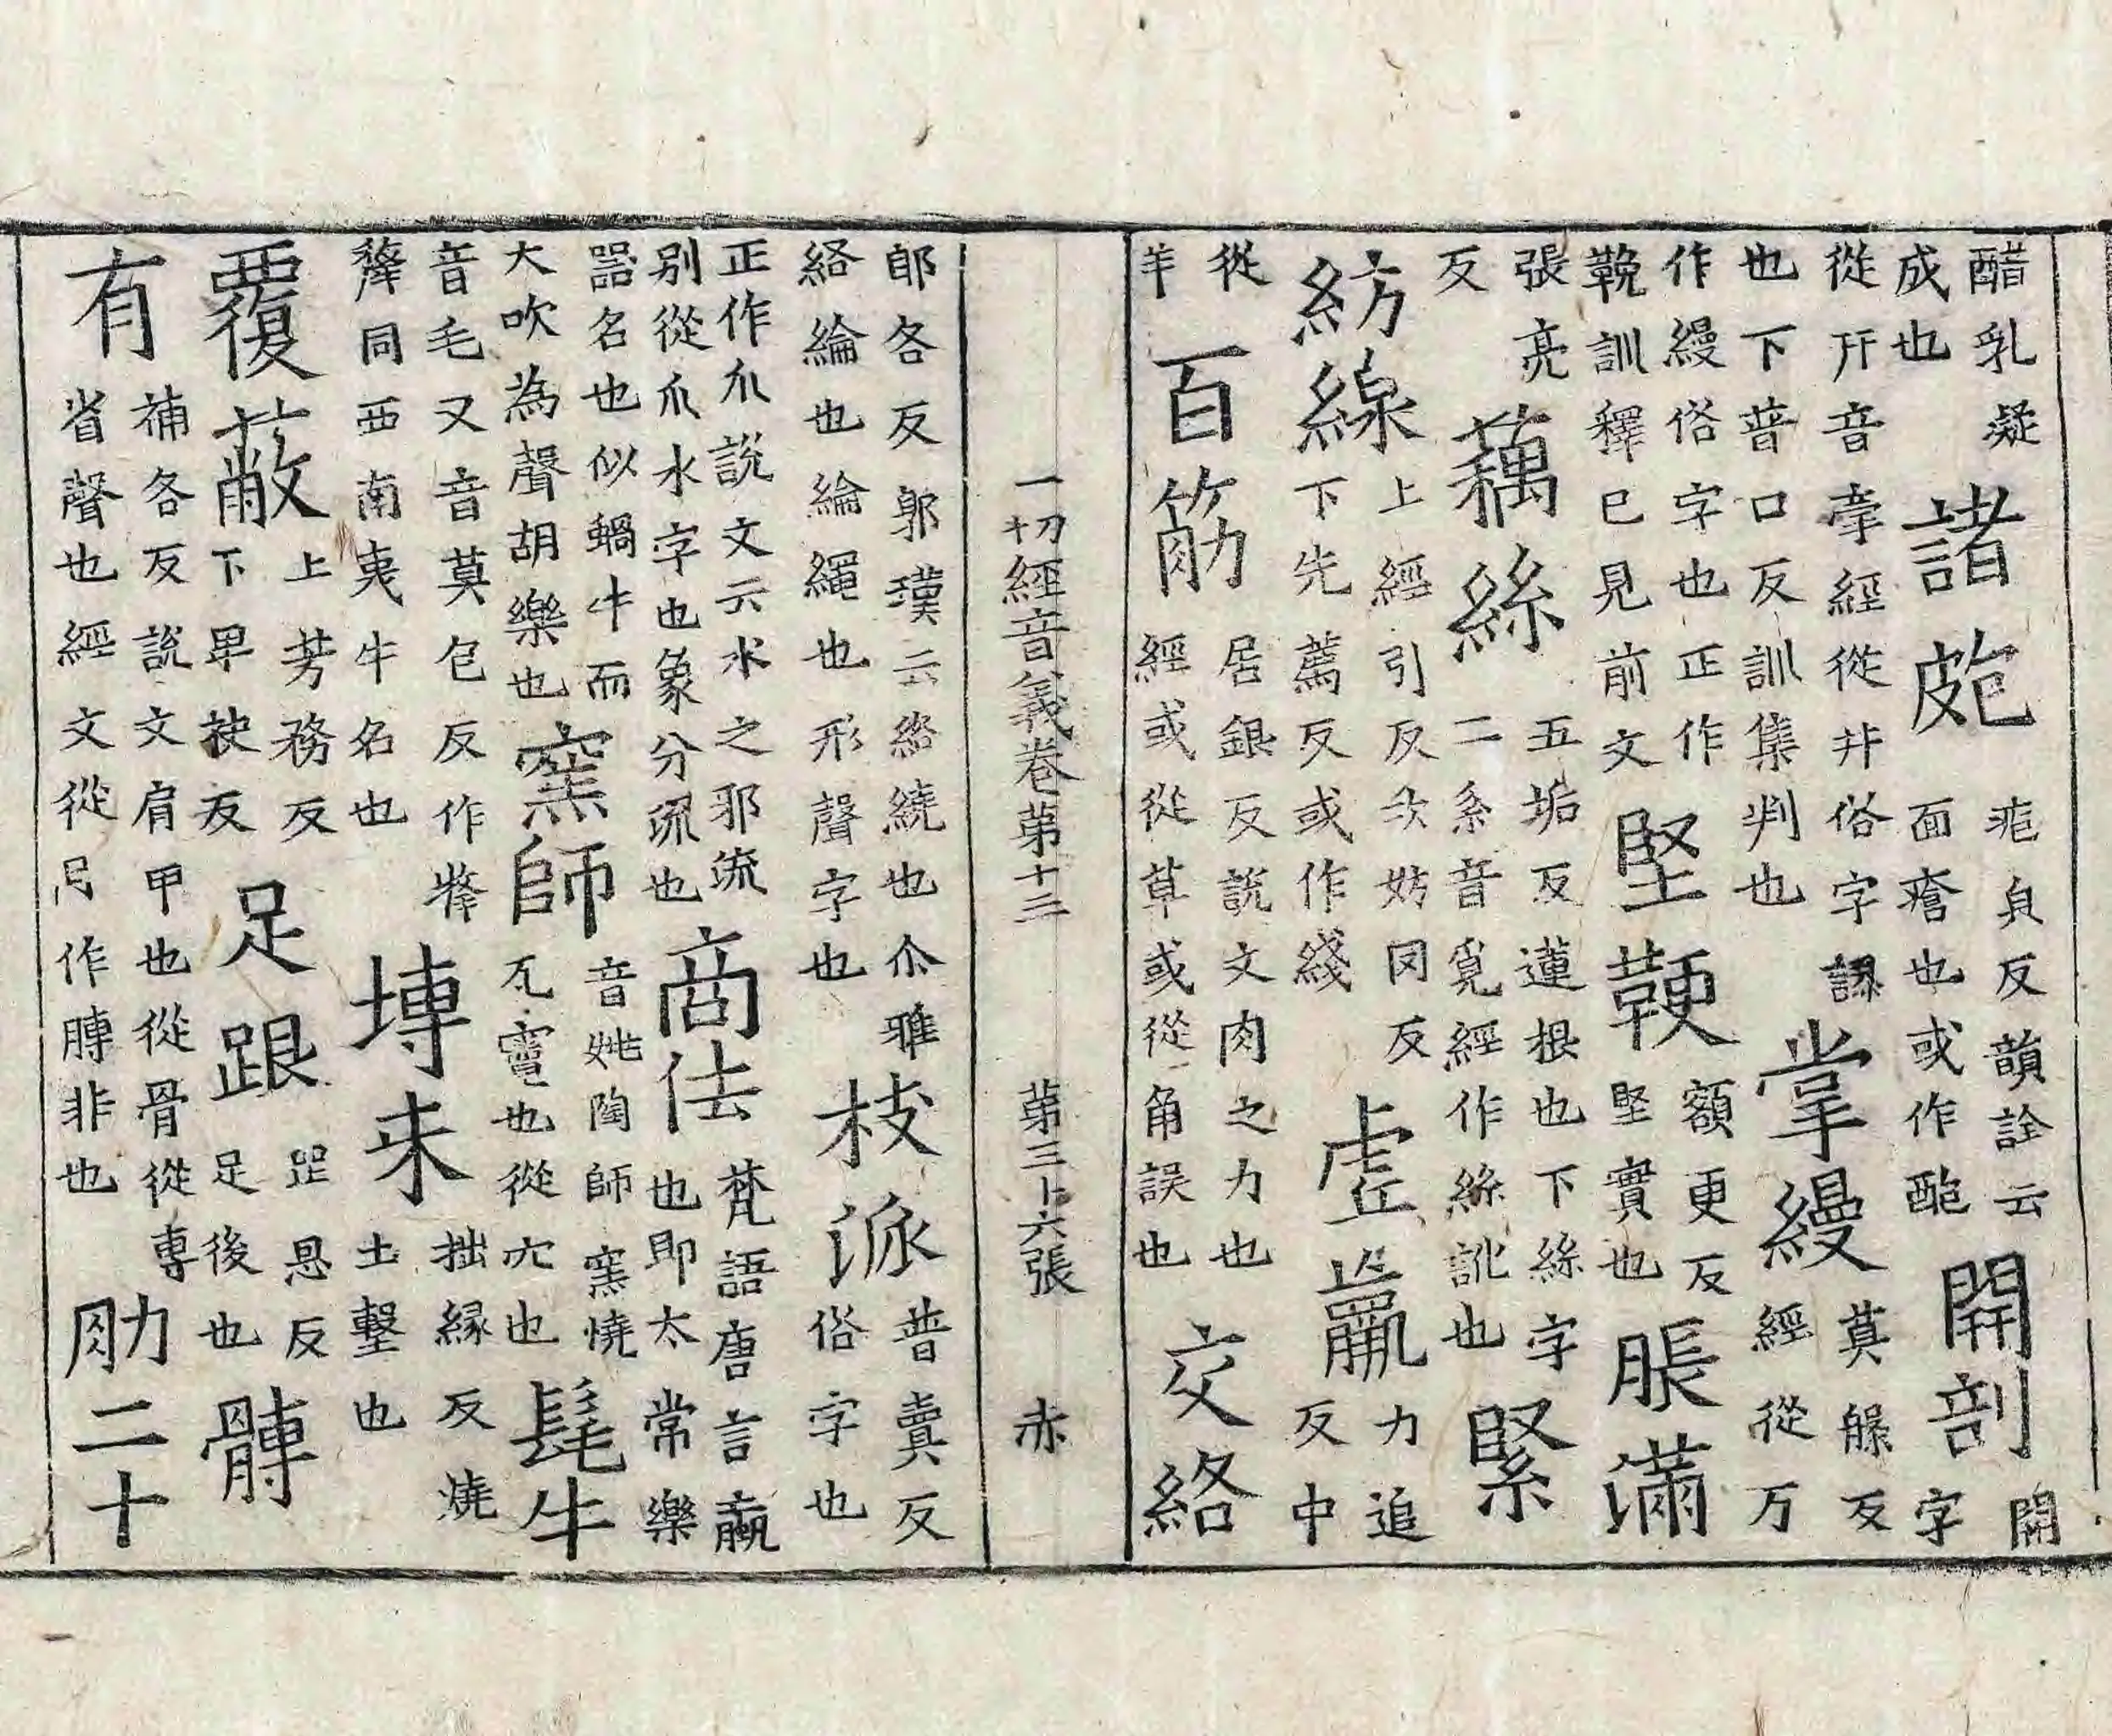 醋乳凝
成也
諸皰
疱皃反韻詮云
面瘡也或作皰
開剖
開
字
從幵音牽經從井俗字誤
也下普口反訓集判也
掌縵
莫㬅反
經從万
作縵俗字也正作
鞔訓釋已見前文
堅鞕
額更反
堅實也
脹滿
張亮
反
藕絲
五垢反蓮根也下絲字
二糸音覓經作絲訛也
緊
紡線
上經引反次妨罔反
下先薦反或作綫
虛羸
力追
反中
從
羊
百筋
居銀反說文肉之力也
經或從草或從角誤也
交絡
一切經音義卷第十二 第三十六張 赤
郎各反郭璞云絡繞也尒雅
絡綸也綸繩也形聲字也
枝派
普賣反
俗字也
正作𠂢說文云水之邪流
別從𠂢水字也象分流也
商佉
梵語唐言蠃
也即太常樂
噐名也似蝸牛而
大吹為聲胡樂也
窯師
音姚陶師窯燒
瓦竈也從穴也
髦牛
音毛又音莫包反作犛
犛同西南夷牛名也
塼未
拙緣反燒
土墼也
覆蔽
上芳務反
下卑袂反
足跟
恩反
足後也
髆
有
補各反說文肩甲也從骨從專
省聲也經文從月作膊非也
肋二十